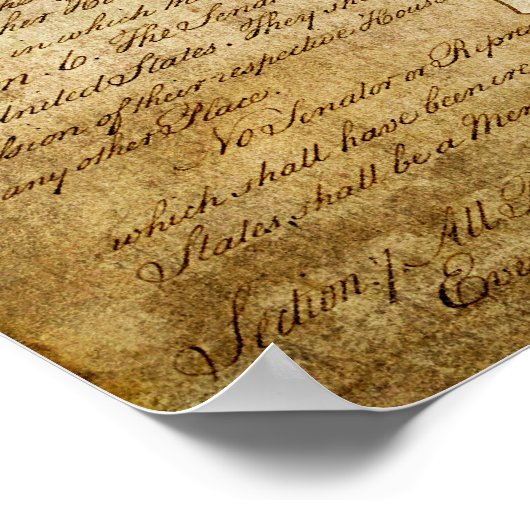 in which
n. 6. The Senat
United States. They sha
ssion of their respective Hous
any other Place.
No Senator or Repre
which shall have been
States shall be a Mem
Section. 7 All
Eve